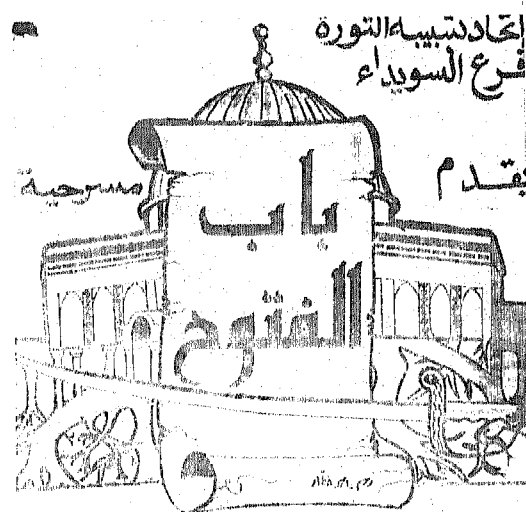 إتحاد شبيبة الثورة
فرع السويداء
يقدم
مسرحية
باب
الفتوح